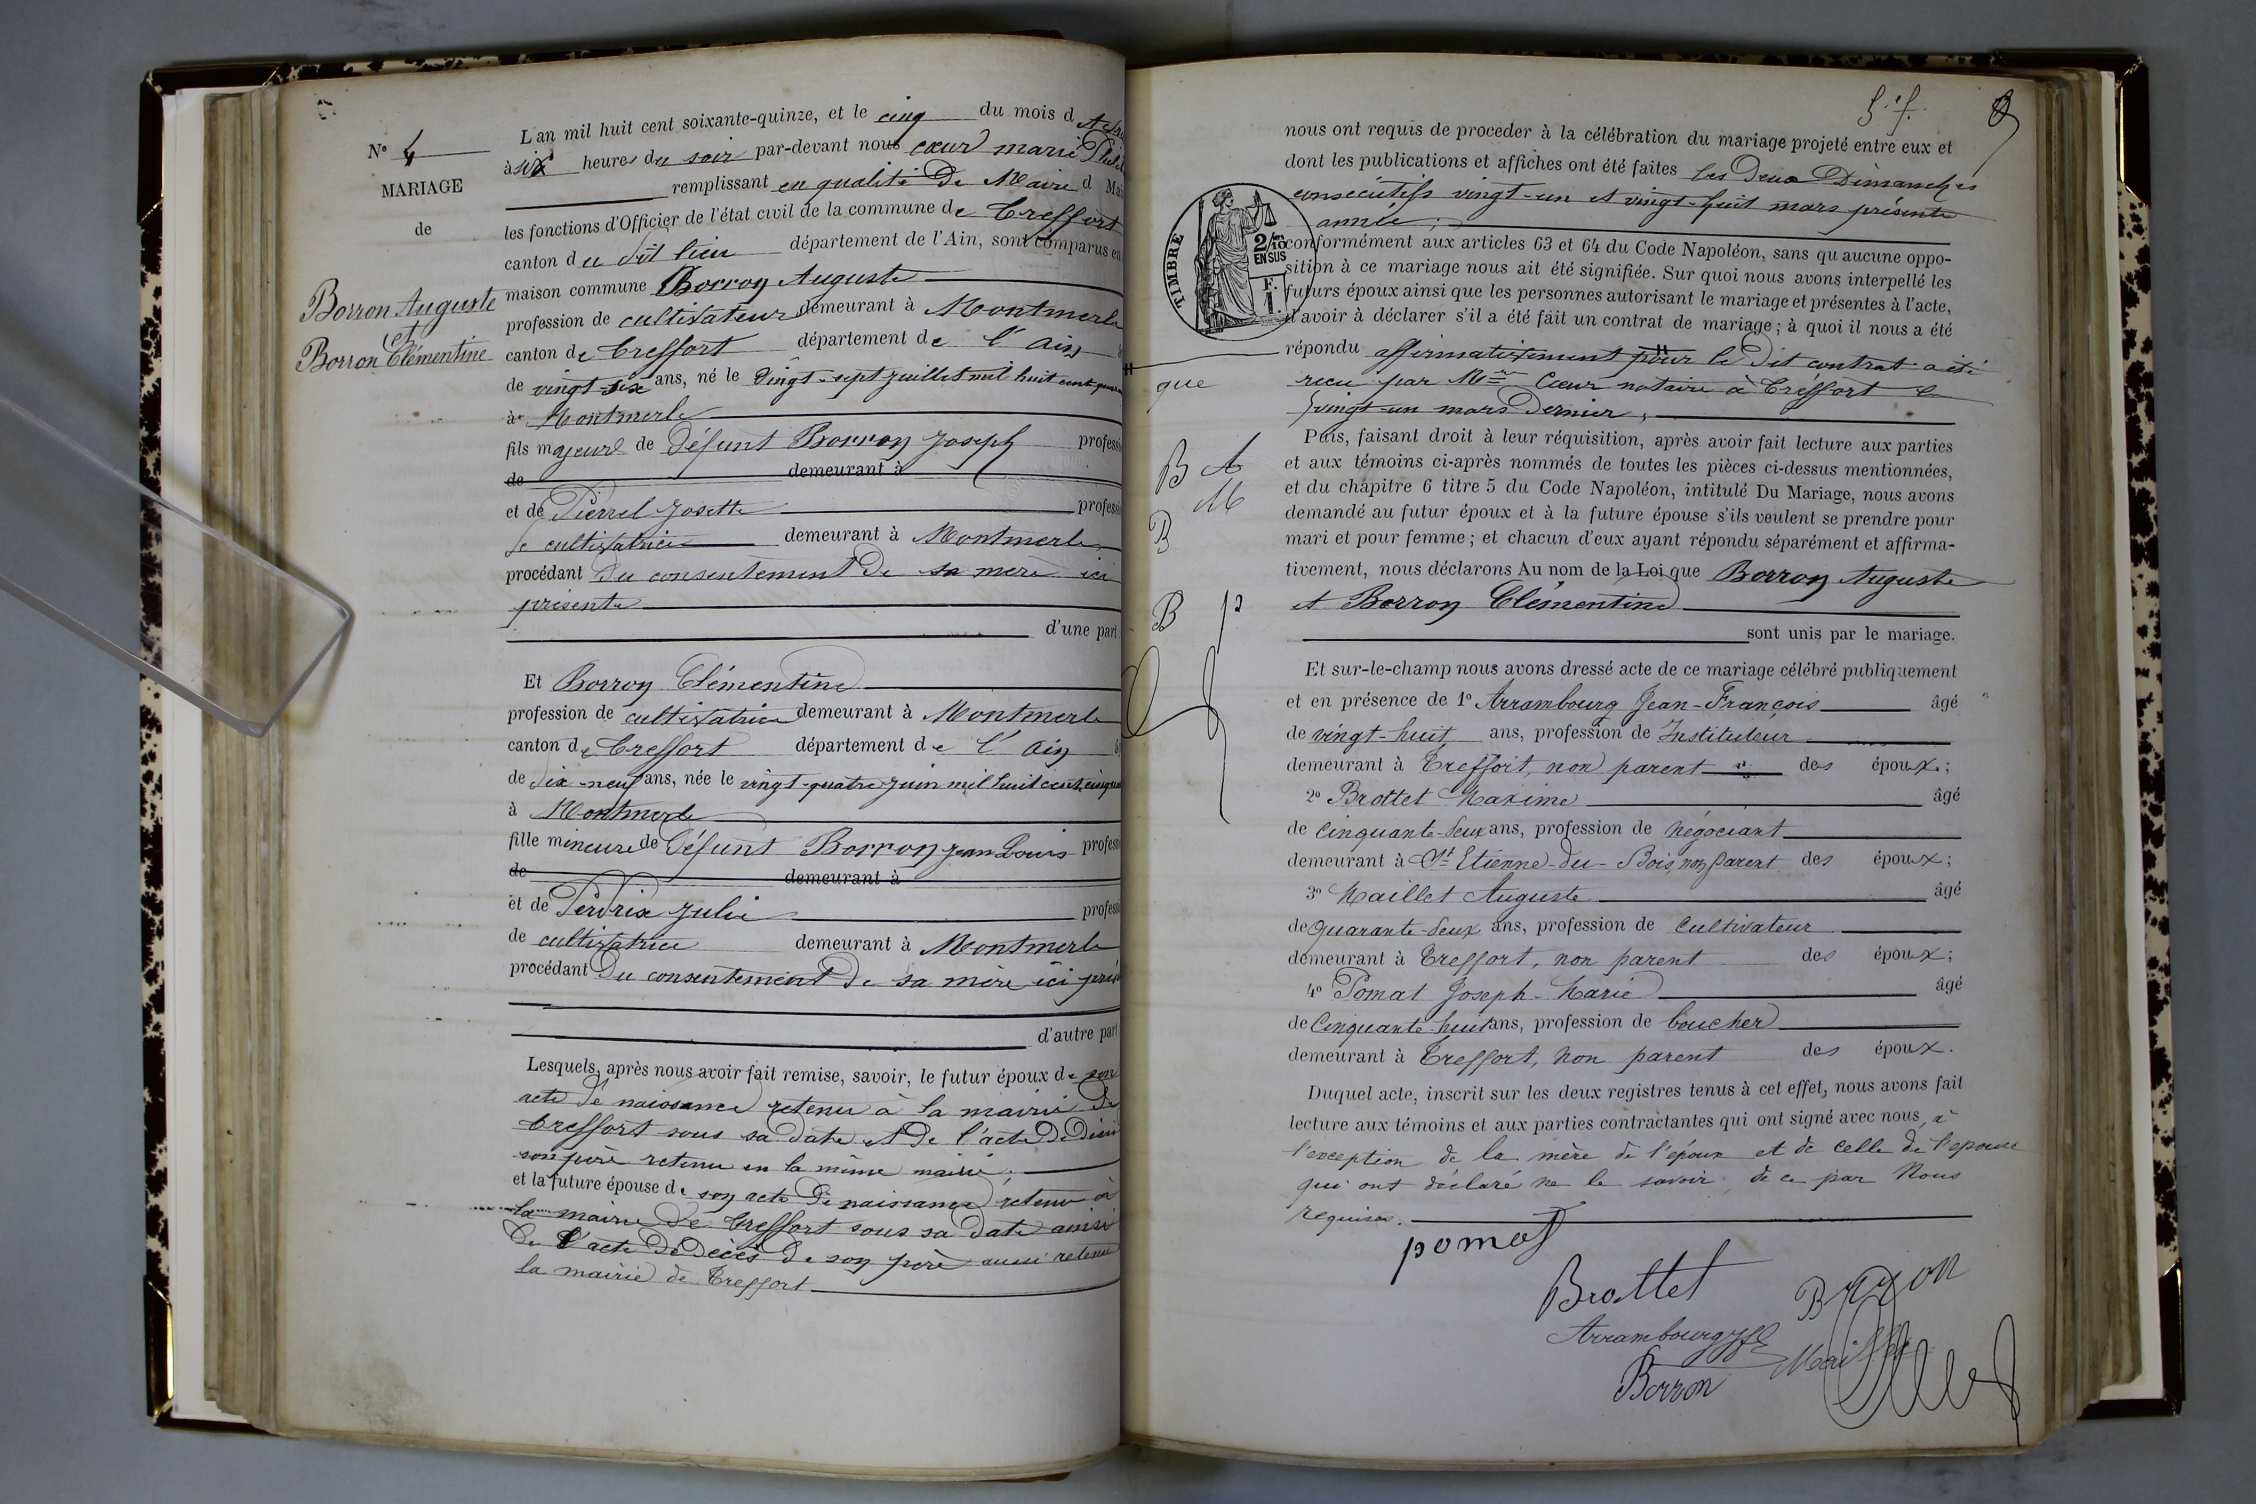 N° 4
MARIAGE
de
Borron Auguste
et
Borron Clémentine
L'an mil huit cent soixante-quinze, et le cinq du mois d
à six heures du soir par-devant nous Cœur marie
remplissant en qualité de Maire d
les fonctions d'Officier de l'état civil de la commune de Treffort
canton du dit lieu département de l'Ain, sont comparus en
maison commune Borron Auguste
profession de cultivateur demeurant à Montmerle
canton de Treffort département de l'Ain
de vingt-six ans, né le vingt-sept juillet mil huit cent
à Montmerle
fils majeur de défunt Borron Joseph
de demeurant à
et de Pierrel Josette
de cultivatrice demeurant à Montmerle
procédant du consentement de sa mère ici
présente
d'une part
Et Borron Clémentine
profession de cultivatrice demeurant à Montmerle
canton de Treffort département de l'Ain
de dix-neuf ans, née le vingt-quatre juin mil huit cent
à Montmerle
fille mineure de défunt Borron jean Louis
de demeurant à
et de Perdrix Julie
de cultivatrice demeurant à Montmerle
procédant du consentement de sa mère ici
d'autre part
Lesquels, après nous avoir fait remise, savoir, le futur époux de son
acte de naissance retenu à la mairie de
Treffort sous sa date et de l'acte de
son père retenu en la même mairie;
et la future épouse de son acte de naissance retenu à
la mairie de Treffort sous sa date ainsi
de l'acte de décès de son père aussi retenu
la mairie de Treffort
nous ont requis de procéder à la célébration du mariage projeté entre eux et
dont les publications et affiches ont été faites les deux Dimanches
consécutifs vingt-un et vingt-huit mars présente
année;
TIMBRE
2/10 EN SUS
F. 1.
conformément aux articles 63 et 64 du Code Napoléon, sans qu'aucune oppo-
sition à ce mariage nous ait été signifiée. Sur quoi nous avons interpellé les
futurs époux ainsi que les personnes autorisant le mariage et présentes à l'acte,
d'avoir à déclarer s'il a été fait un contrat de mariage; à quoi il nous a été
répondu affirmativement pour le dit contrat a été
que
reçu par Me Cœur notaire à Treffort le
vingt-un mars dernier;
Puis, faisant droit à leur réquisition, après avoir fait lecture aux parties
B A
et aux témoins ci-après nommés de toutes les pièces ci-dessus mentionnées,
M
et du chapitre 6 titre 5 du Code Napoléon, intitulé Du Mariage, nous avons
B
demandé au futur époux et à la future épouse s'ils veulent se prendre pour
mari et pour femme; et chacun d'eux ayant répondu séparément et affirma-
tivement, nous déclarons Au nom de la Loi que Borron Auguste
B p
et Borron Clémentine
sont unis par le mariage.
Et sur-le-champ nous avons dressé acte de ce mariage célébré publiquement
et en présence de 1° Arrambourg Jean-François âgé
de vingt-huit ans, profession de Instituteur
demeurant à Treffort, non parent des époux;
2° Brottet Maxime âgé
de cinquante-deux ans, profession de négociant
demeurant à St Etienne-du-Bois, non parent des époux;
3° Maillet Auguste âgé
de quarante-deux ans, profession de cultivateur
demeurant à Treffort, non parent des époux;
4° Pomat Joseph-Marie âgé
de cinquante-huit ans, profession de boucher
demeurant à Treffort, non parent des époux.
Duquel acte, inscrit sur les deux registres tenus à cet effet, nous avons fait
lecture aux témoins et aux parties contractantes qui ont signé avec nous, à
l'exception de la mère de l'époux et de celle de l'épouse
qui ont déclaré ne le savoir, de ce par Nous
requises.
pomat
Brottet
Borron
Arrambourg
Maillet
Borron